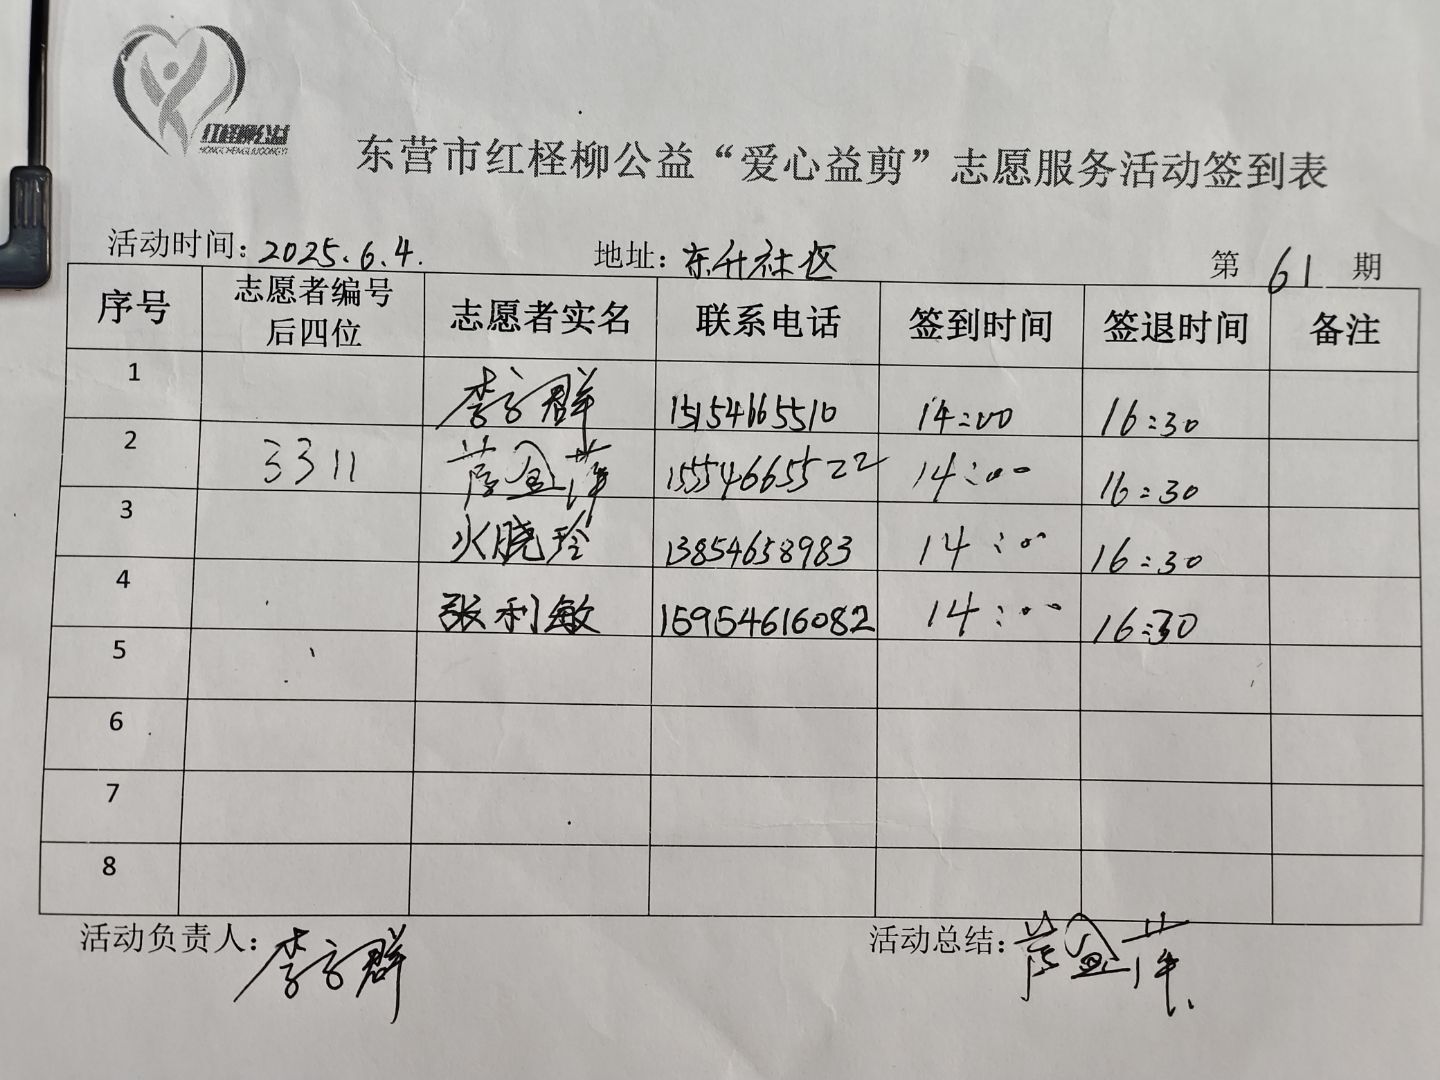 红柽柳公益
HONGCHENGLIUGONGYI
东营市红柽柳公益“爱心益剪”志愿服务活动签到表
活动时间：2025.6.4. 地址：东升社区 第 61 期
序号 志愿者编号后四位 志愿者实名 联系电话 签到时间 签退时间 备注
1 李方群 15154665510 14:00 16:30
2 3311 薛金萍 15554665522 14:00 16:30
3 火晓玲 13854658983 14:00 16:30
4 张利敏 15954616082 14:00 16:30
5
6
7
8
活动负责人：李方群 活动总结：薛金萍